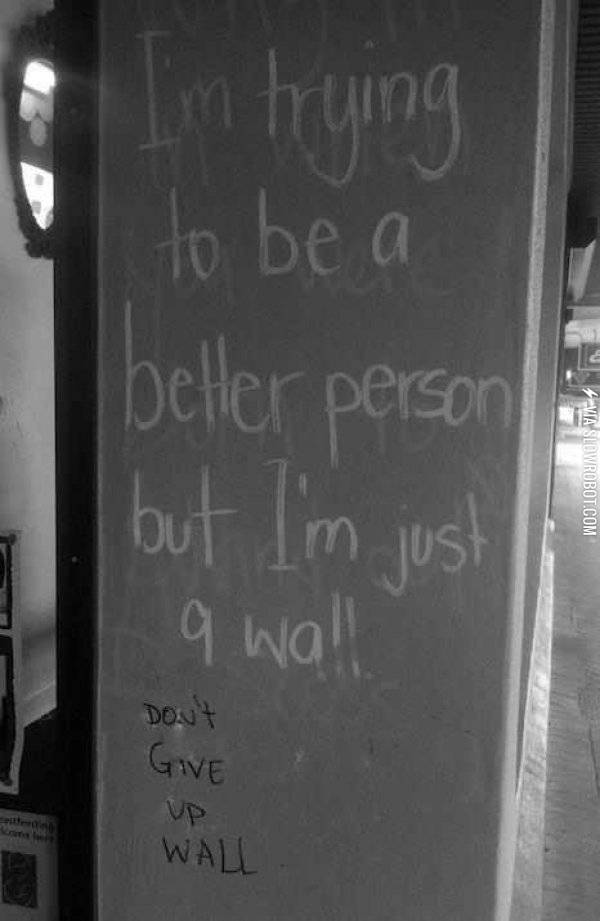 I'm trying
to be a
better person
but I'm just
a wall
DON'T
GIVE
UP
WALL
VIA SLOWROBOT.COM